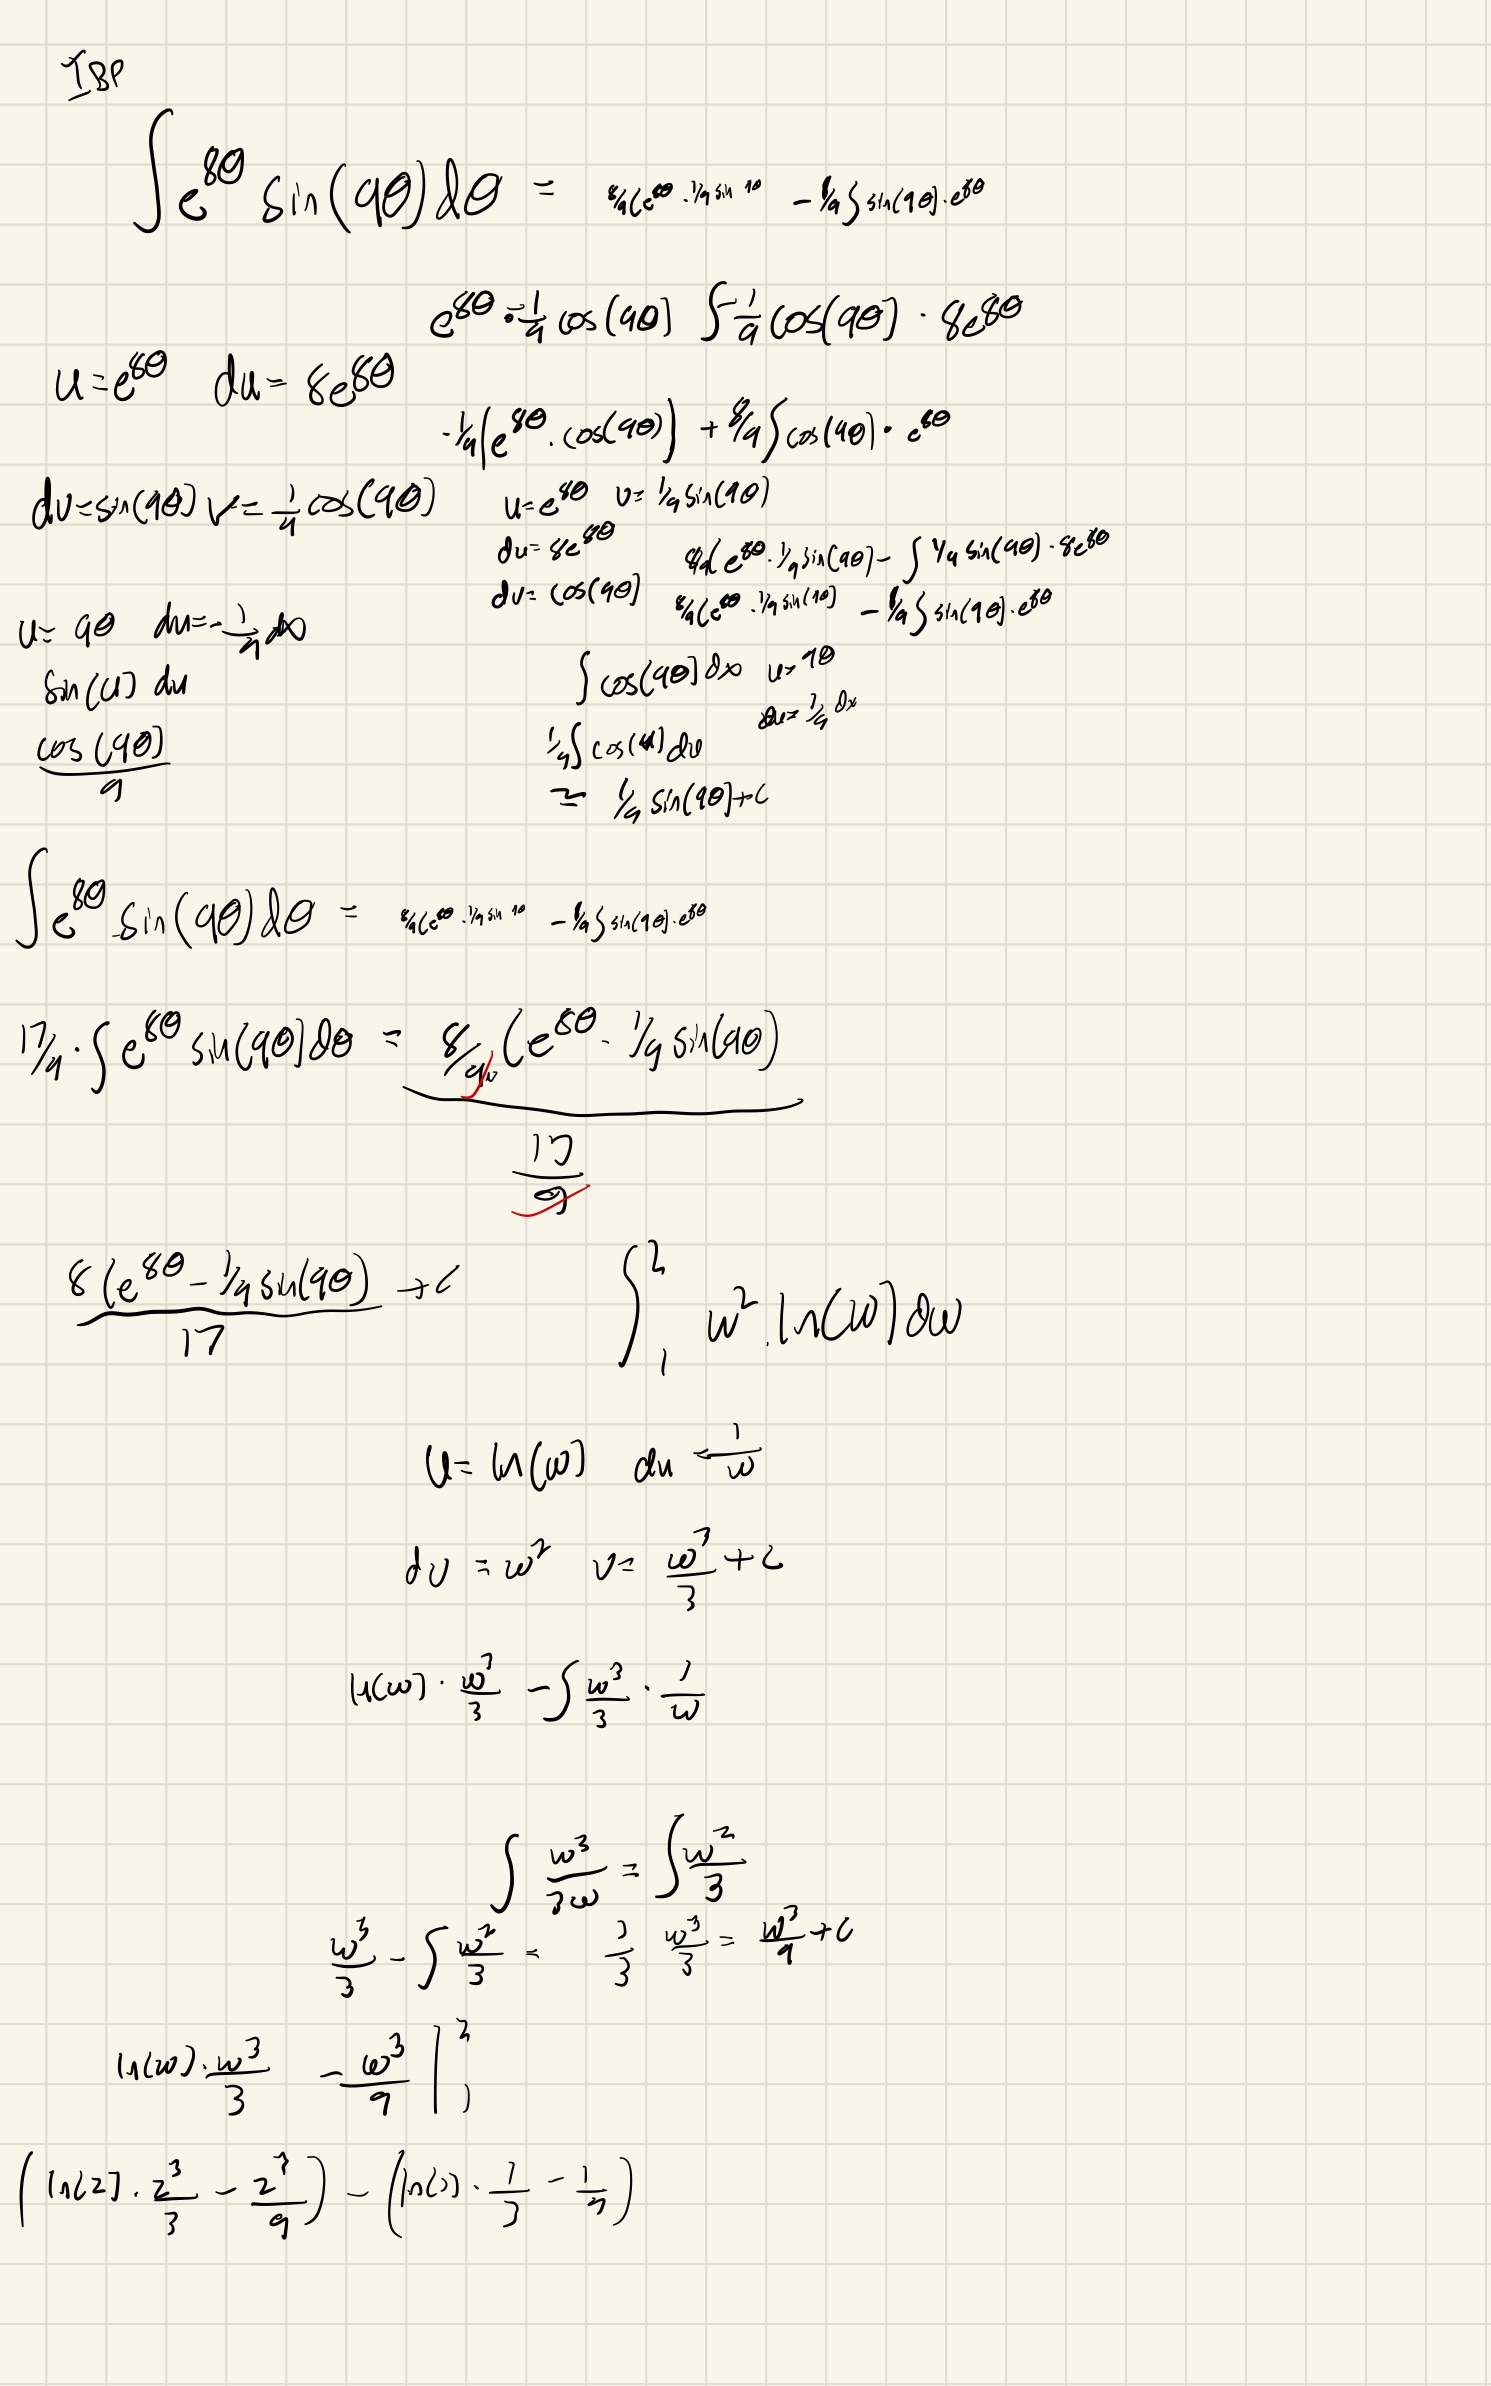 IBP
∫ e^{8θ} sin(9θ)dθ = 8/9(e^{8θ} · 1/9 sin 9θ - 8/9∫ sin(9θ) · e^{8θ}
e^{8θ} · -1/9 cos(9θ) ∫ -1/9 cos(9θ) · 8e^{8θ}
u = e^{8θ} du = 8e^{8θ}
-1/9(e^{8θ} · cos(9θ)) + 8/9∫cos(9θ) · e^{8θ}
dv = sin(9θ) v = 1/9 cos(9θ)
u = e^{8θ} v = 1/9 sin(9θ)
du = 8e^{8θ}
8/9(e^{8θ} · 1/9 sin(9θ) - ∫ 1/9 sin(9θ) · 8e^{8θ}
dv = cos(9θ)
8/9(e^{8θ} · 1/9 sin(9θ) - 8/9∫ sin(9θ) · e^{8θ}
u = 9θ du = -1/9 dx
sin(u) du
cos(9θ)/9
∫ cos(9θ) dx u = 9θ
du = 1/9 dx
1/9∫ cos(u) du
= 1/9 sin(9θ) + c
∫ e^{8θ} sin(9θ)dθ = 8/9(e^{8θ} · 1/9 sin 9θ - 8/9∫ sin(9θ) · e^{8θ}
17/9 · ∫ e^{8θ} sin(9θ)dθ = 8/9 (e^{8θ} - 1/9 sin(9θ))
17/9
8(e^{8θ} - 1/9 sin(9θ))/17 + c
∫_1^2 w^2 · ln(w) dw
u = ln(w) du = 1/w
dv = w^2 v = w^3/3 + c
ln(w) · w^3/3 - ∫ w^3/3 · 1/w
∫ w^3/3w = ∫ w^2/3
w^3/3 - ∫ w^2/3 = 1/3 w^3/3 = w^3/9 + c
ln(w) · w^3/3 - w^3/9 |_1^2
(ln(2) · 2^3/3 - 2^3/9) - (ln(1) · 1/3 - 1/9)